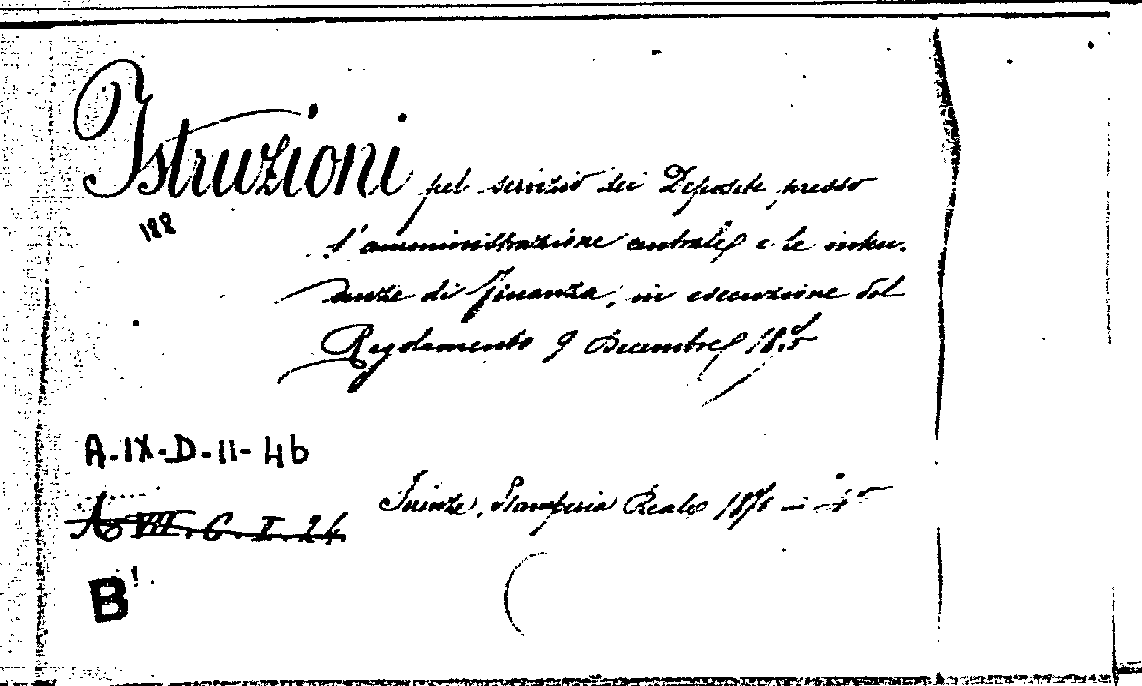 Istruzioni pel servizio dei Depositi presso
188
l'amministrazione centrale e le inten-
denze di finanza, in esecuzione del
Regolamento 9 Decembre
A-IX-D-II-46
Firenze, Stamperia Reale 1876 in 4º
A VII. C. I. 24
B